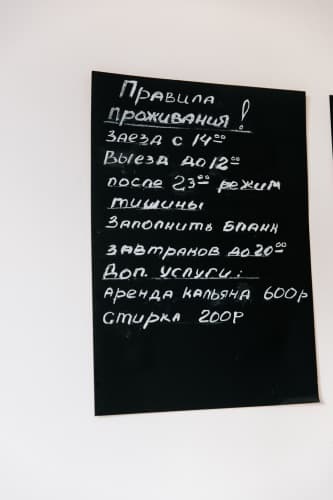 Правила
проживания!
Заезд с 14⁰⁰
Выезд до 12⁰⁰
после 23⁰⁰ режим
тишины
Заполнить бланк
завтраков до 20⁰⁰
Доп. услуги:
Аренда кальяна 600р
Стирка 200р